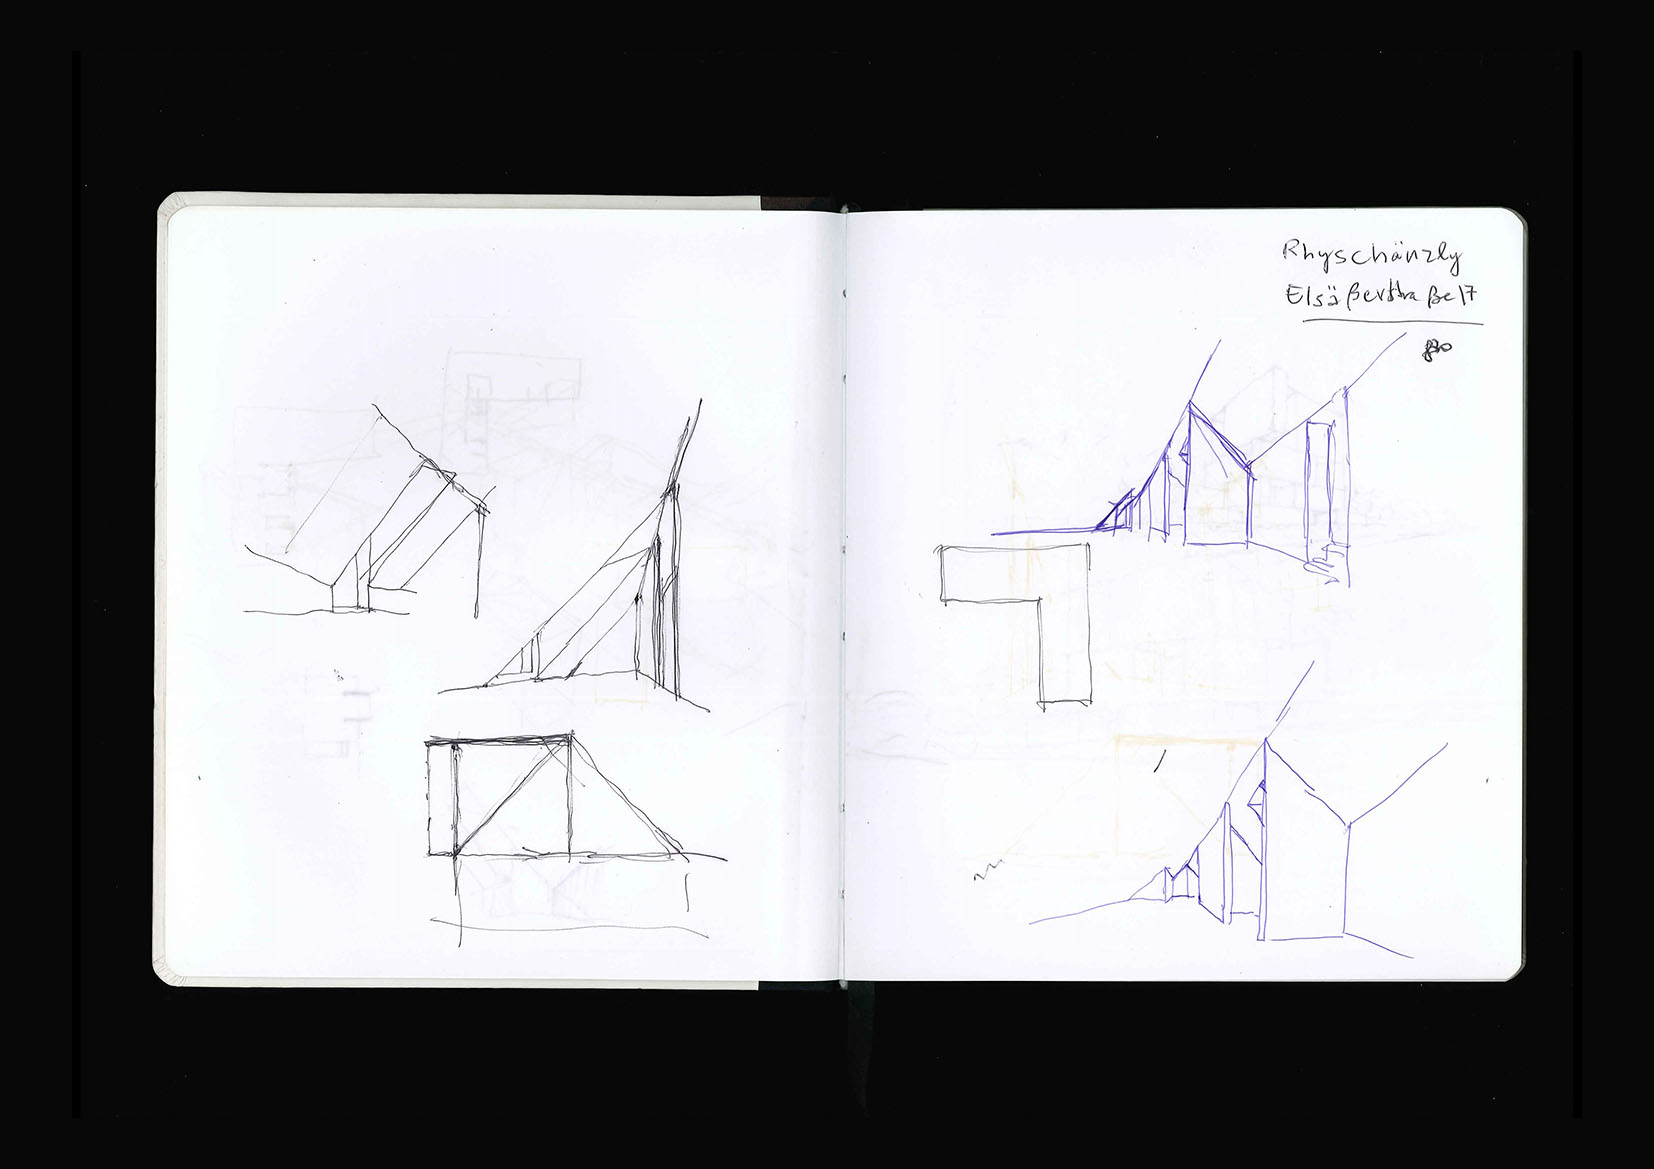 Rhyschänzly
Elsäßerstraße 17